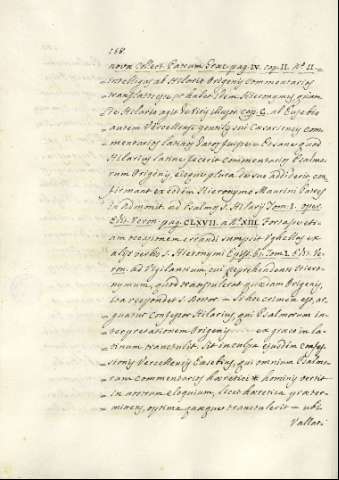 188.
nova Collect. Patrum Graec. pag. IV. cap. II. N.º II.
intelligas ab Hilario Origenis commentarios
translatos esse, ut habet idem Hieronymus, quum
de Hilario agit
autem Vercellensi
mentarios latinos
Hilarius latine fecerit commentarios Psalmo-
rum Origenis, eisque plura de suo addiderit, con-
firmant ex eodem Hieronymo Maurini Patres
in admonit. ad Psalmos S. Hilarii Tom. I.
Edit. Veron. pag. CLXVII. a N.º XIII. Fortasse eti-
am occasionem errandi sumpsit Ughellus ex
aliis verbis S. Hieronymi Epist. 61. Tom. I. Edit. Ve-
ron. ad Vigilantium, cui reprehendenti Hiero-
nymum, quod transtulerit quaedam Origenis,
ita respondet S. Doctor — Si hoc crimen est, ar-
guatur Confessor Hilarius, qui Psalmorum in-
terpretationem Origenis ex graeco in la-
tinum transtulit. Sit in culpa ejusdem confes-
sionis Vercellensis Eusebius, qui omnium Psalmo-
rum commentarios haeretici hominis vertit
in nostrum eloquium, licet haeretica praeter-
mittens, optima quaeque transtulerit — ubi
Vallar: